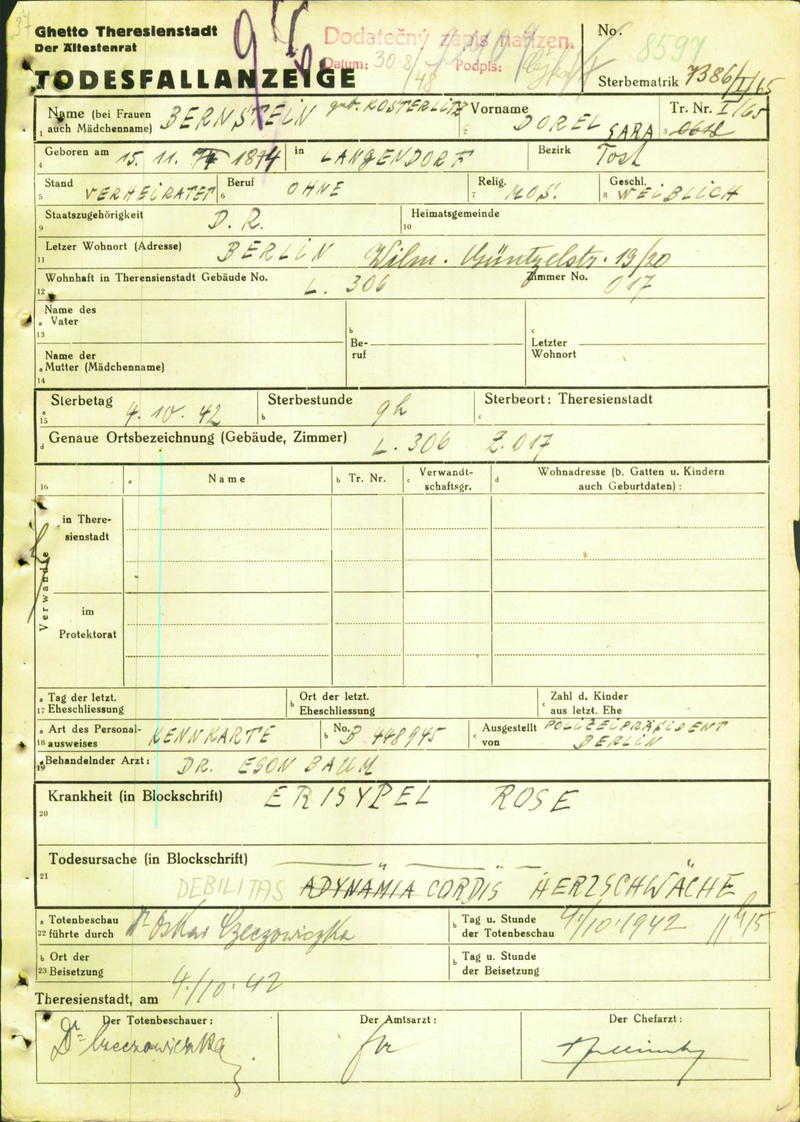 37
Ghetto Theresienstadt
Der Ältestenrat
TODESFALLANZEIGE
Dodatečný zápis nařízen.
Datum: 30.8./48 Podpis:
No.
8597
Sterbematrik 7386/I/65
Name (bei Frauen auch Mädchenname) BERNSTEIN geb. KOSTERLITZ
Vorname DOREL SARA
Tr. Nr. I/65
Geboren am 15. 11. 1874 in LANGENDORF Bezirk Tost
Stand VERHEIRATET Beruf OHNE Relig. MOS. Geschl. WEIBLICH
Staatszugehörigkeit D. R. Heimatsgemeinde
Letzer Wohnort (Adresse) BERLIN Wilm. Güntzelstr. 19/20
Wohnhaft in Theresienstadt Gebäude No. L. 306 Zimmer No. 017
Name des Vater
Beruf
Letzter Wohnort
Name der Mutter (Mädchenname)
Sterbetag 4. 10. 42 Sterbestunde 9h Sterbeort: Theresienstadt
Genaue Ortsbezeichnung (Gebäude, Zimmer) L. 306 Z. 017
Name Tr. Nr. Verwandtschaftsgr. Wohnadresse (b. Gatten u. Kindern auch Geburtdaten) :
Verwandte
in Theresienstadt
im Protektorat
Tag der letzt. Eheschliessung Ort der letzt. Eheschliessung Zahl d. Kinder aus letzt. Ehe
Art des Personalausweises KENNKARTE No. B 448945 Ausgestellt von POLIZEIPRÄSIDENT BERLIN
Behandelnder Arzt: DR. EGON BAUM
Krankheit (in Blockschrift) ERISYPEL ROSE
Todesursache (in Blockschrift)
DEBILITAS ADYNAMIA CORDIS HERZSCHWÄCHE
Totenbeschau führte durch Dr Oskar Czeczowiczka Tag u. Stunde der Totenbeschau 4./10. 1942 11h15
Ort der Beisetzung Tag u. Stunde der Beisetzung
Theresienstadt, am 4./10. 42
Der Totenbeschauer: Der Amtsarzt: Der Chefarzt:
Dr Czeczowiczka